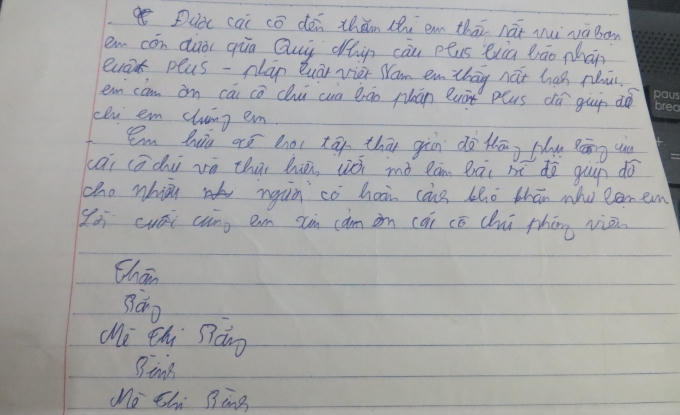 - Được các cô đến thăm thì em thấy rất vui và bạn
em còn được quà Quỹ Nhịp cầu Plus của báo pháp
luật Plus - pháp luật việt Nam em thấy rất hạnh phúc,
em cảm ơn các cô chú của báo pháp luật Plus đã giúp đỡ
chị em chúng em.
- Em hứa sẽ học tập thật giỏi để không phụ lòng của
các cô chú và thực hiện ước mơ làm bác sĩ để giúp đỡ
cho nhiều người có hoàn cảnh khó khăn như bạn em
Lời cuối cùng em xin cảm ơn các cô chú phóng viên
Mè Thị
Mè Thị